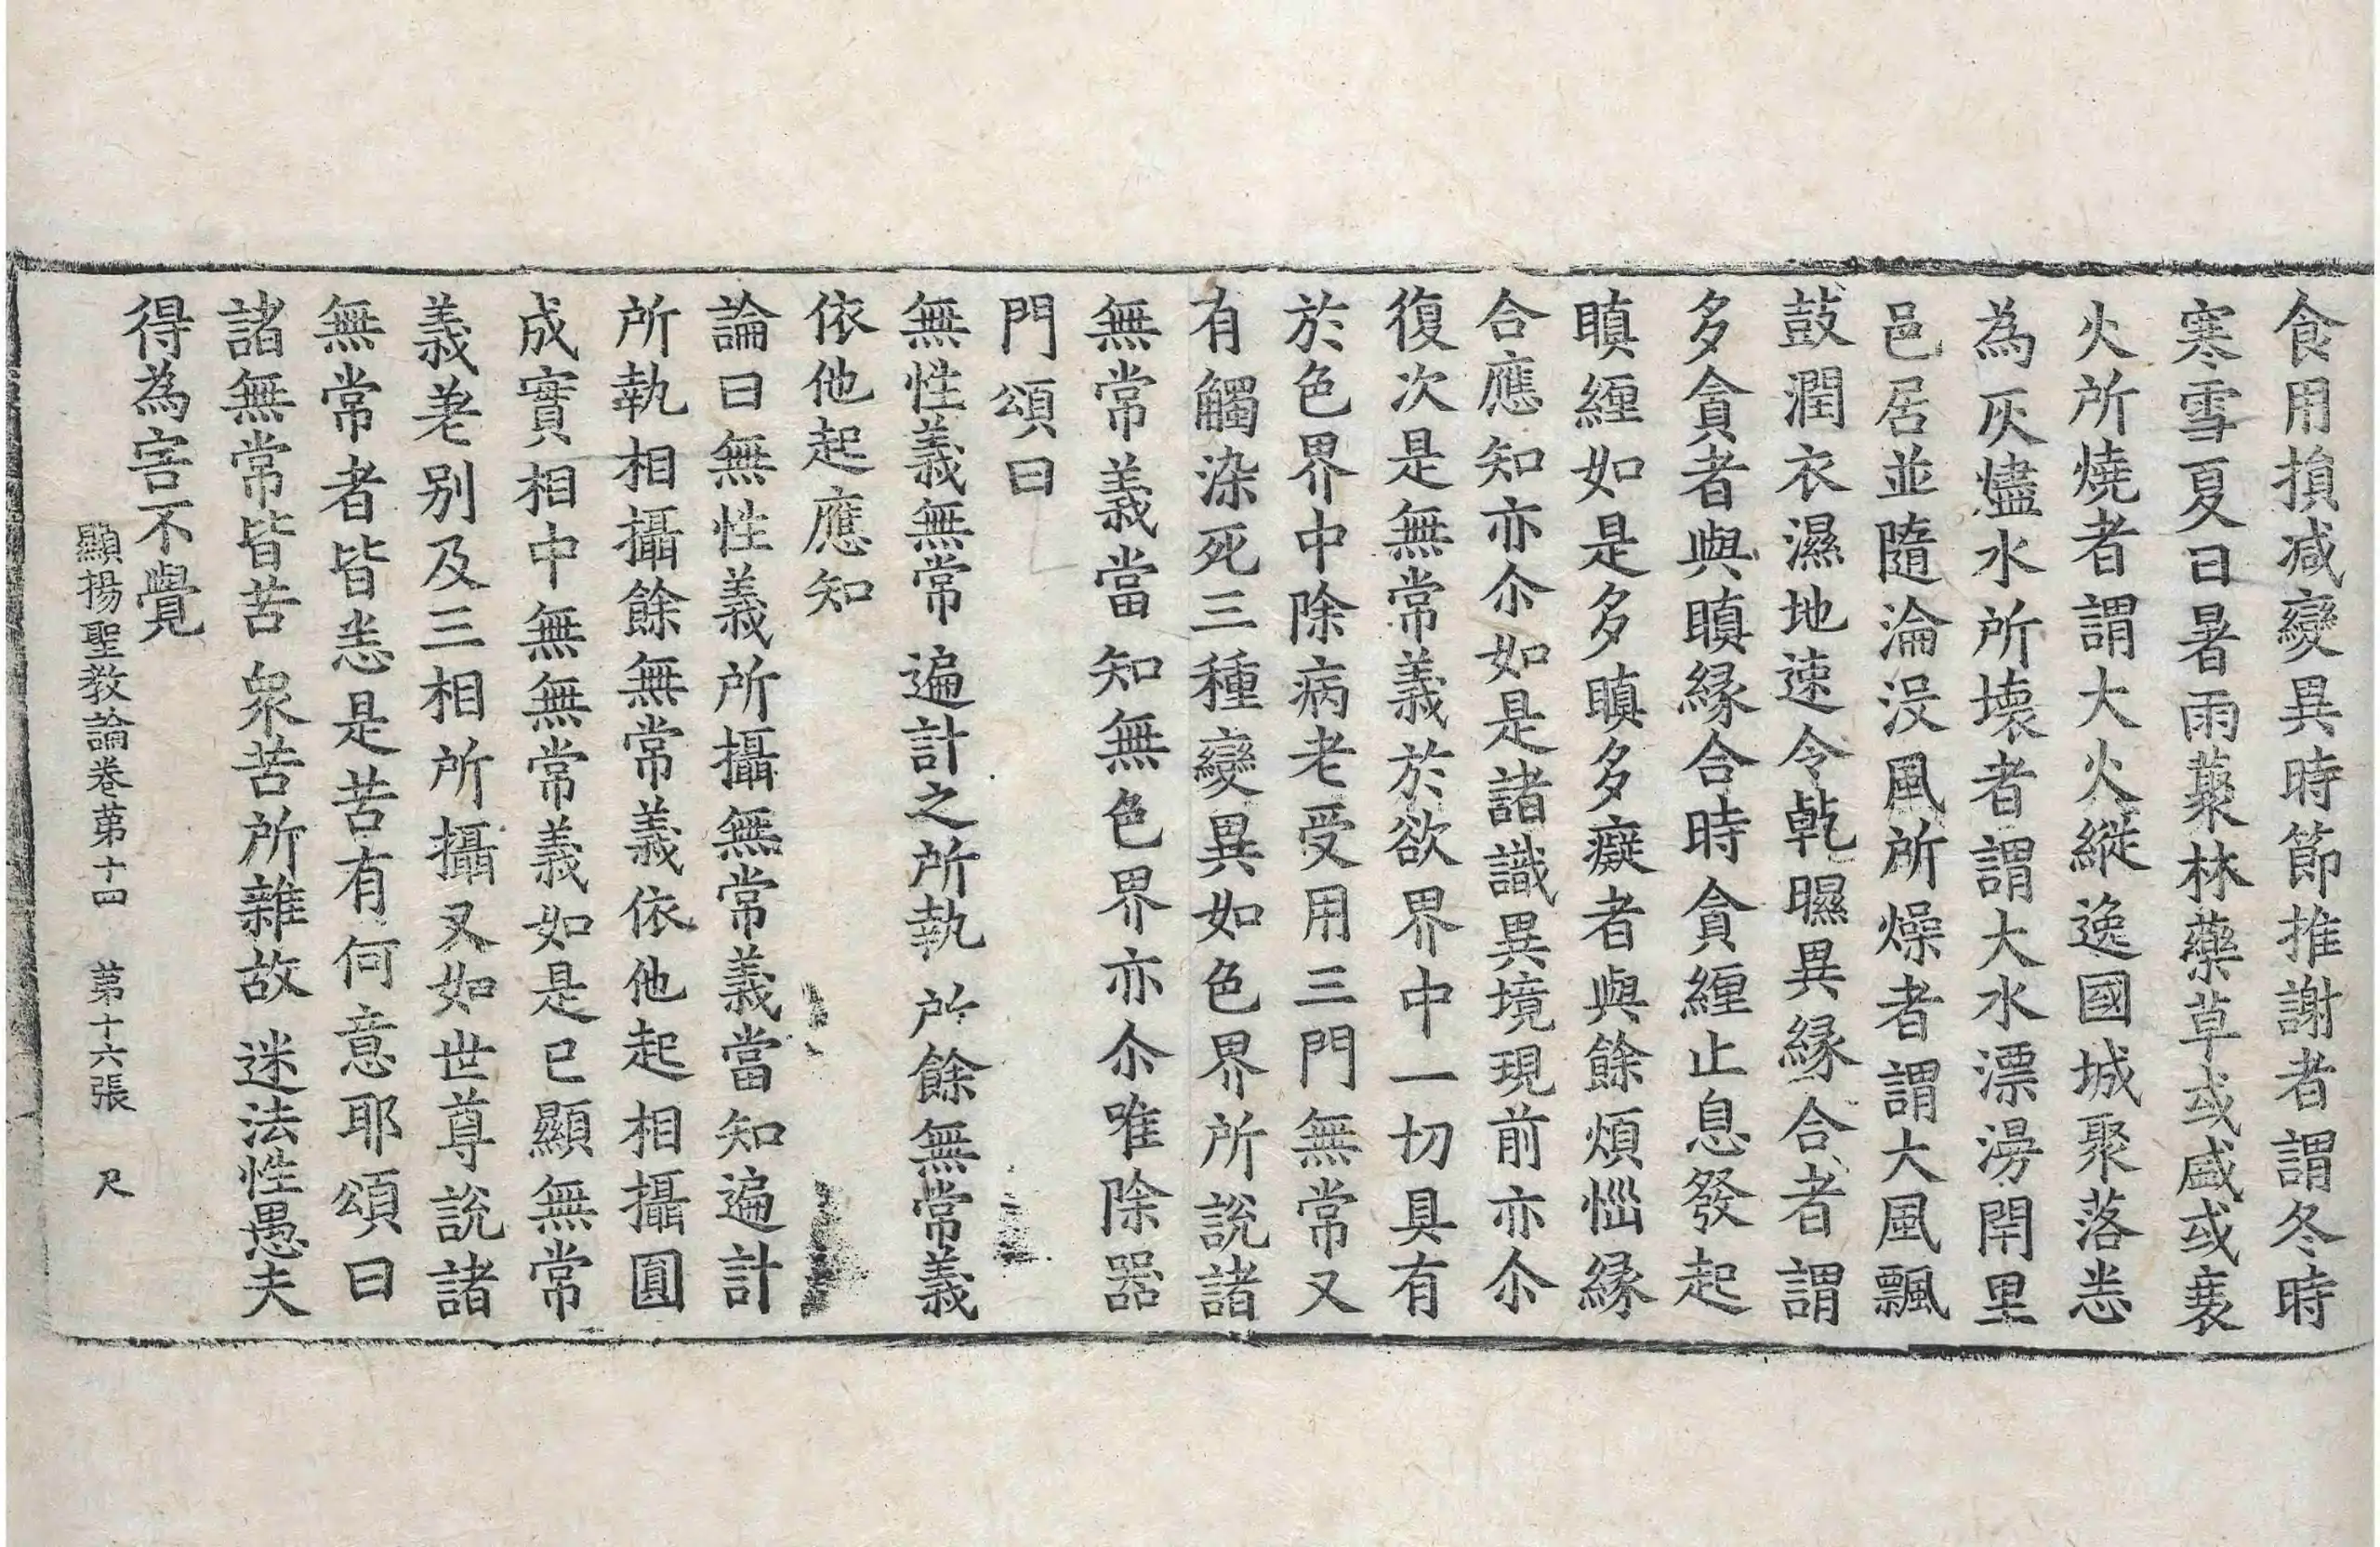 食用損减變異時節推謝者謂冬時
寒雪夏日暑雨藂林藥草或盛或衰
火所燒者謂大火縱逸國城聚落悉
為灰燼水所壞者謂大水漂湯閈里
邑居並隨淪没風所燥者謂大風飄
鼓潤衣濕地速令乹曝異緣合者謂
多貪者與瞋緣合時貪纏止息發起
瞋纏如是多瞋多癡者與餘煩惱緣
合應知亦尒如是諸識異境現前亦尒
復次是無常義於欲界中一切具有
於色界中除病老受用三門無常又
有觸染死三種變異如色界所說諸
無常義當知無色界亦尒唯除器
門頌曰
無性義無常 遍計之所執 所餘無常義
依他起應知
論曰無性義所攝無常義當知遍計
所執相攝餘無常義依他起相攝圓
成實相中無無常義如是已顯無常
義差别及三相所攝又如世尊說諸
無常者皆悉是苦有何意耶頌曰
諸無常皆苦 衆苦所雜故 迷法性愚夫
得為害不覺
顯揚聖教論卷苐十四 苐十六張 尺